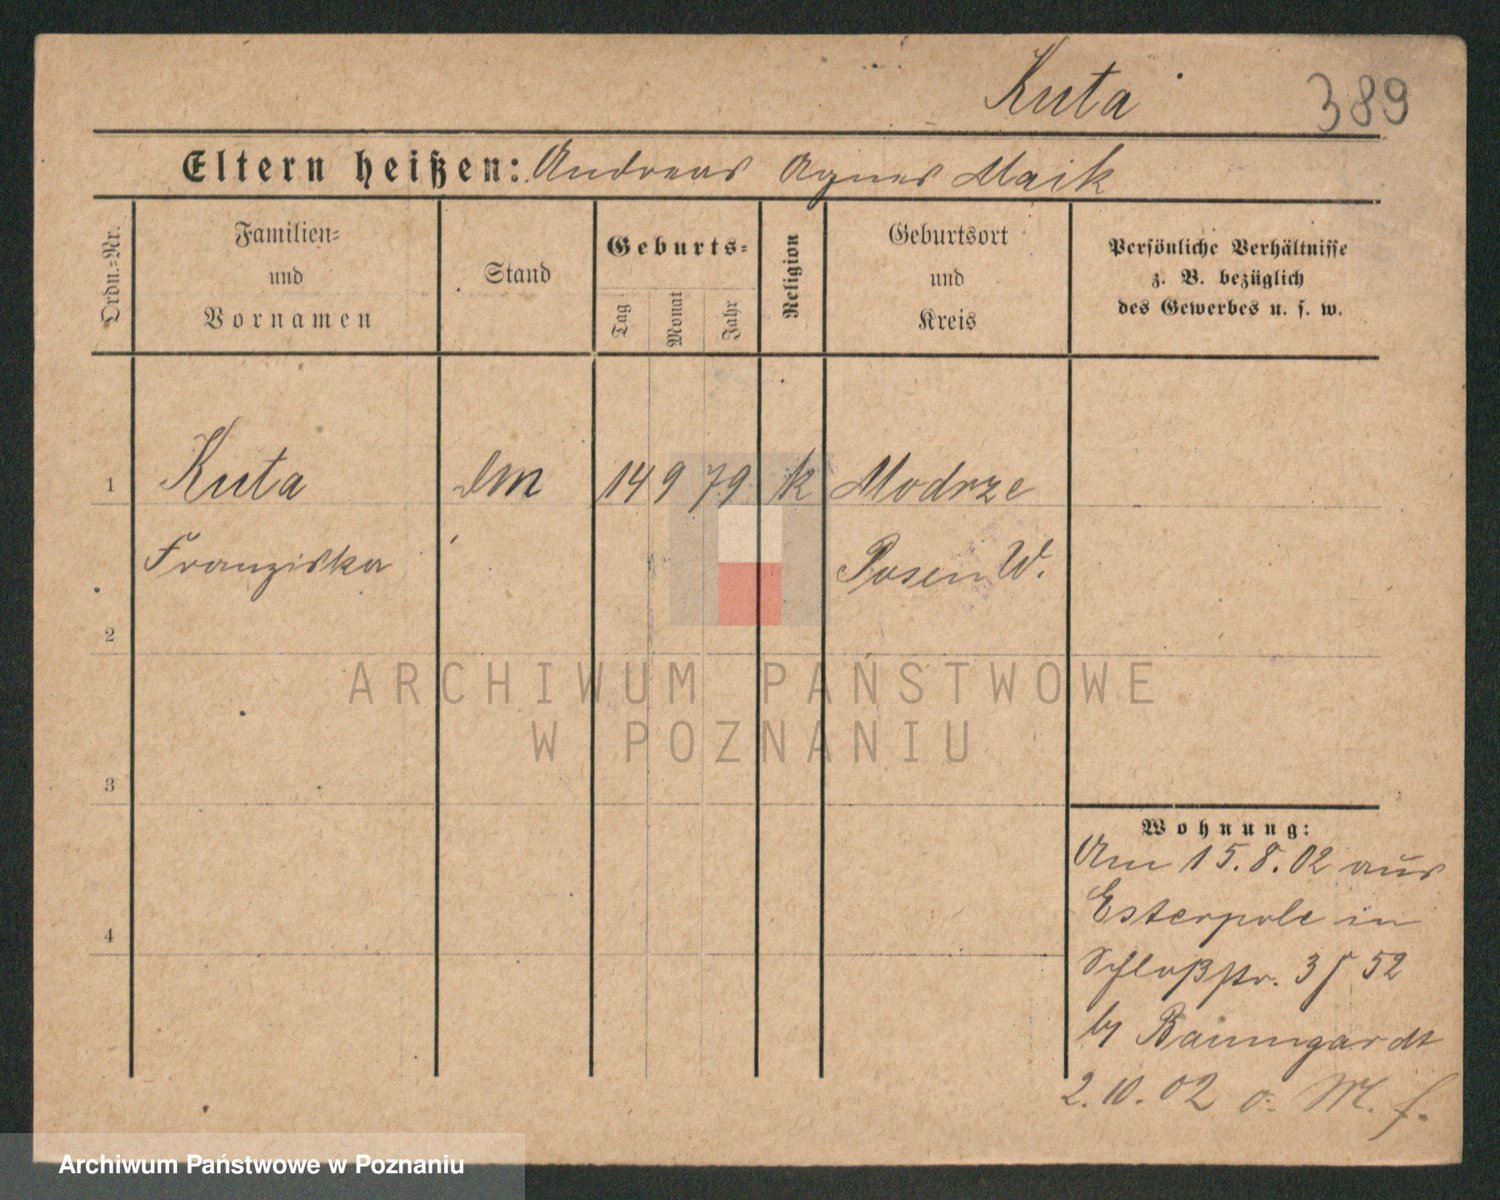 Kuta
389
Eltern heißen: Andreas Agnes Maik
Ordn.-Nr.
Familien-
und
Vornamen
Stand
Geburts-
Tag
Monat
Jahr
Religion
Geburtsort
und
Kreis
Persönliche Verhältnisse
z. B. bezüglich
des Gewerbes u. s. w.
1 Kuta 14 9 79 k Modrze
Franziska Posen W.
2
3
4
Wohnung:
Am 15.8.02 aus
in
Schloßstr. 52
by Baumgardt
2.10.02 M. f.
ARCHIWUM PAŃSTWOWE
W POZNANIU
Archiwum Państwowe w Poznaniu